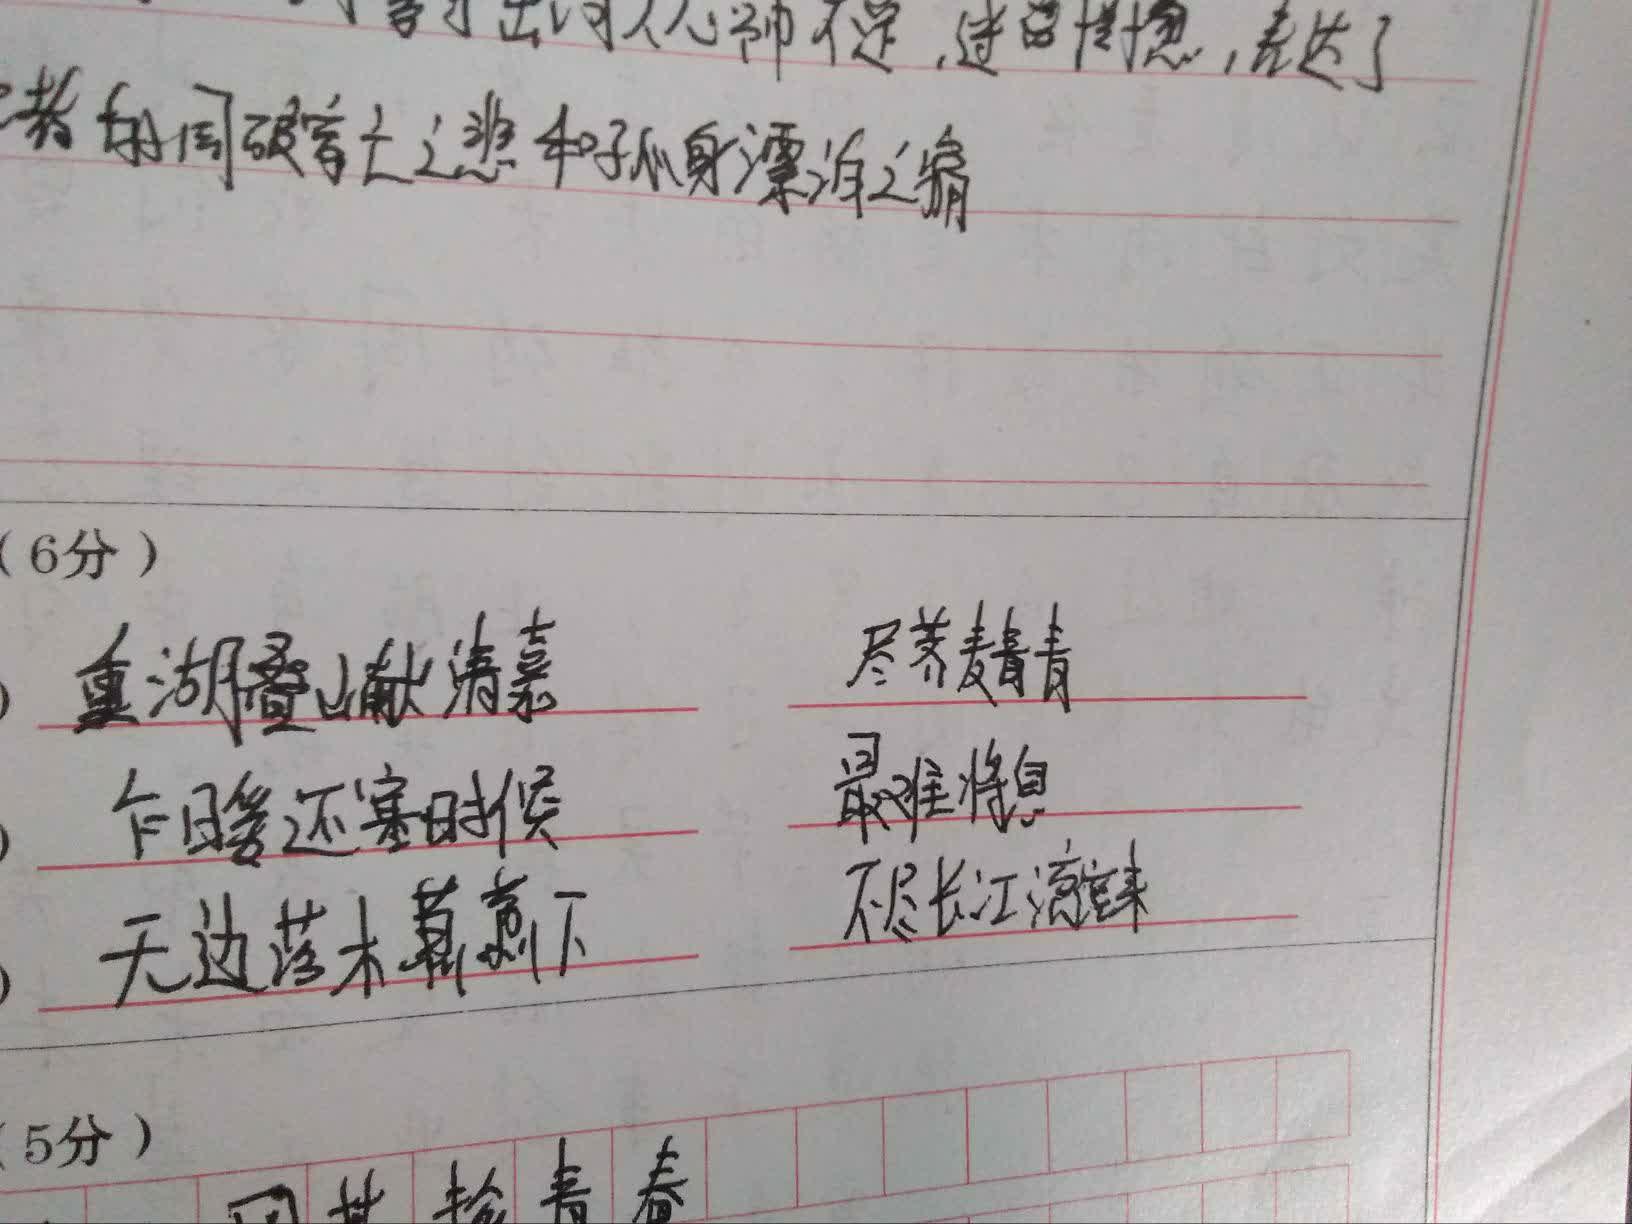 出词人心神不定,进酒惜愁,表达了
者的国破家亡之悲和孤身漂泊之痛
(6分)
) 重湖叠山献清嘉 尽荠麦青青
) 乍暖还寒时候 最难将息
) 无边落木萧萧下 不尽长江滚滚来
(5分)
青春